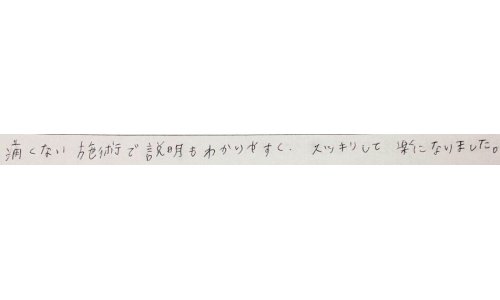 痛くない施術で説明もわかりやすく、スッキリして楽になりました。